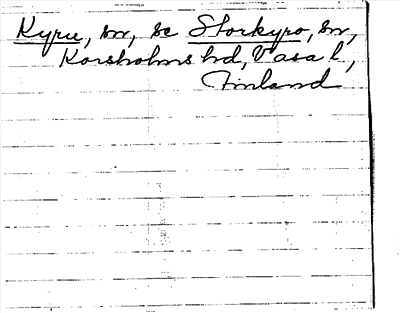 Kyru, sn, se Storkyro, sn,
Korsholms hd, Vasa l,
Finland